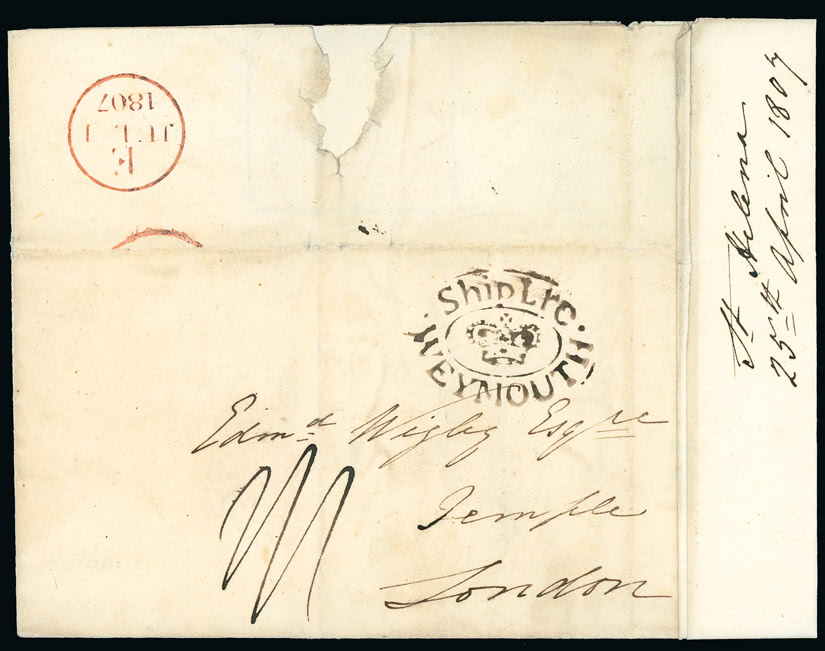 E
JUL 1
1807
Ship Lre
WEYMOUTH
Edmd Wigley Esqre
Temple
London
St Helena
25th April 1807